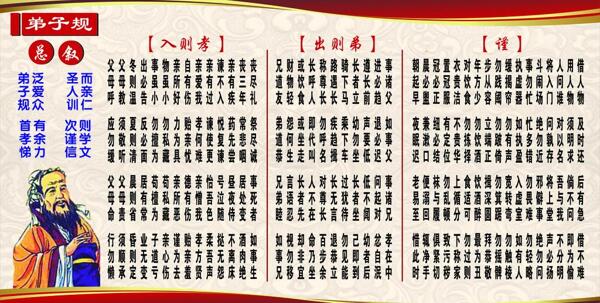 弟子规
总叙
弟子规 圣人训 首孝悌 次谨信
泛爱众 而亲仁 有余力 则学文
【入则孝】
父母呼 应勿缓 父母命 行勿懒
父母教 须敬听 父母责 须顺承
冬则温 夏则凊 晨则省 昏则定
出必告 反必面 居有常 业无变
事虽小 勿擅为 苟擅为 子道亏
物虽小 勿私藏 苟私藏 亲心伤
亲所好 力为具 亲所恶 谨为去
身有伤 贻亲忧 德有伤 贻亲羞
亲爱我 孝何难 亲恶我 孝方贤
亲有过 谏使更 怡吾色 柔吾声
谏不入 悦复谏 号泣随 挞无怨
亲有疾 药先尝 昼夜侍 不离床
丧三年 常悲咽 居处变 酒肉绝
丧尽礼 祭尽诚 事死者 如事生
【出则弟】
兄道友 弟道恭 兄弟睦 孝在中
财物轻 怨何生 言语忍 忿自泯
或饮食 或坐走 长者先 幼者后
长呼人 即代叫 人不在 己即到
称尊长 勿呼名 对尊长 勿见能
路遇长 疾趋揖 长无言 退恭立
骑下马 乘下车 过犹待 百步余
长者立 幼勿坐 长者坐 命乃坐
尊长前 声要低 低不闻 却非宜
进必趋 退必迟 问起对 视勿移
事诸父 如事父 事诸兄 如事兄
【谨】
朝起早 夜眠迟 老易至 惜此时
晨必盥 兼漱口 便溺回 辄净手
冠必正 纽必结 袜与履 俱紧切
置冠服 有定位 勿乱顿 致污秽
衣贵洁 不贵华 上循分 下称家
对饮食 勿拣择 食适可 勿过则
年方少 勿饮酒 饮酒醉 最为丑
步从容 立端正 揖深圆 拜恭敬
勿践阈 勿跛倚 勿箕踞 勿摇髀
缓揭帘 勿有声 宽转弯 勿触棱
执虚器 如执盈 入虚室 如有人
事勿忙 忙多错 勿畏难 勿轻略
斗闹场 绝勿近 邪僻事 绝勿问
将入门 问孰存 将上堂 声必扬
人问谁 对以名 吾与我 不分明
用人物 须明求 倘不问 即为偷
借人物 及时还 后有急 借不难